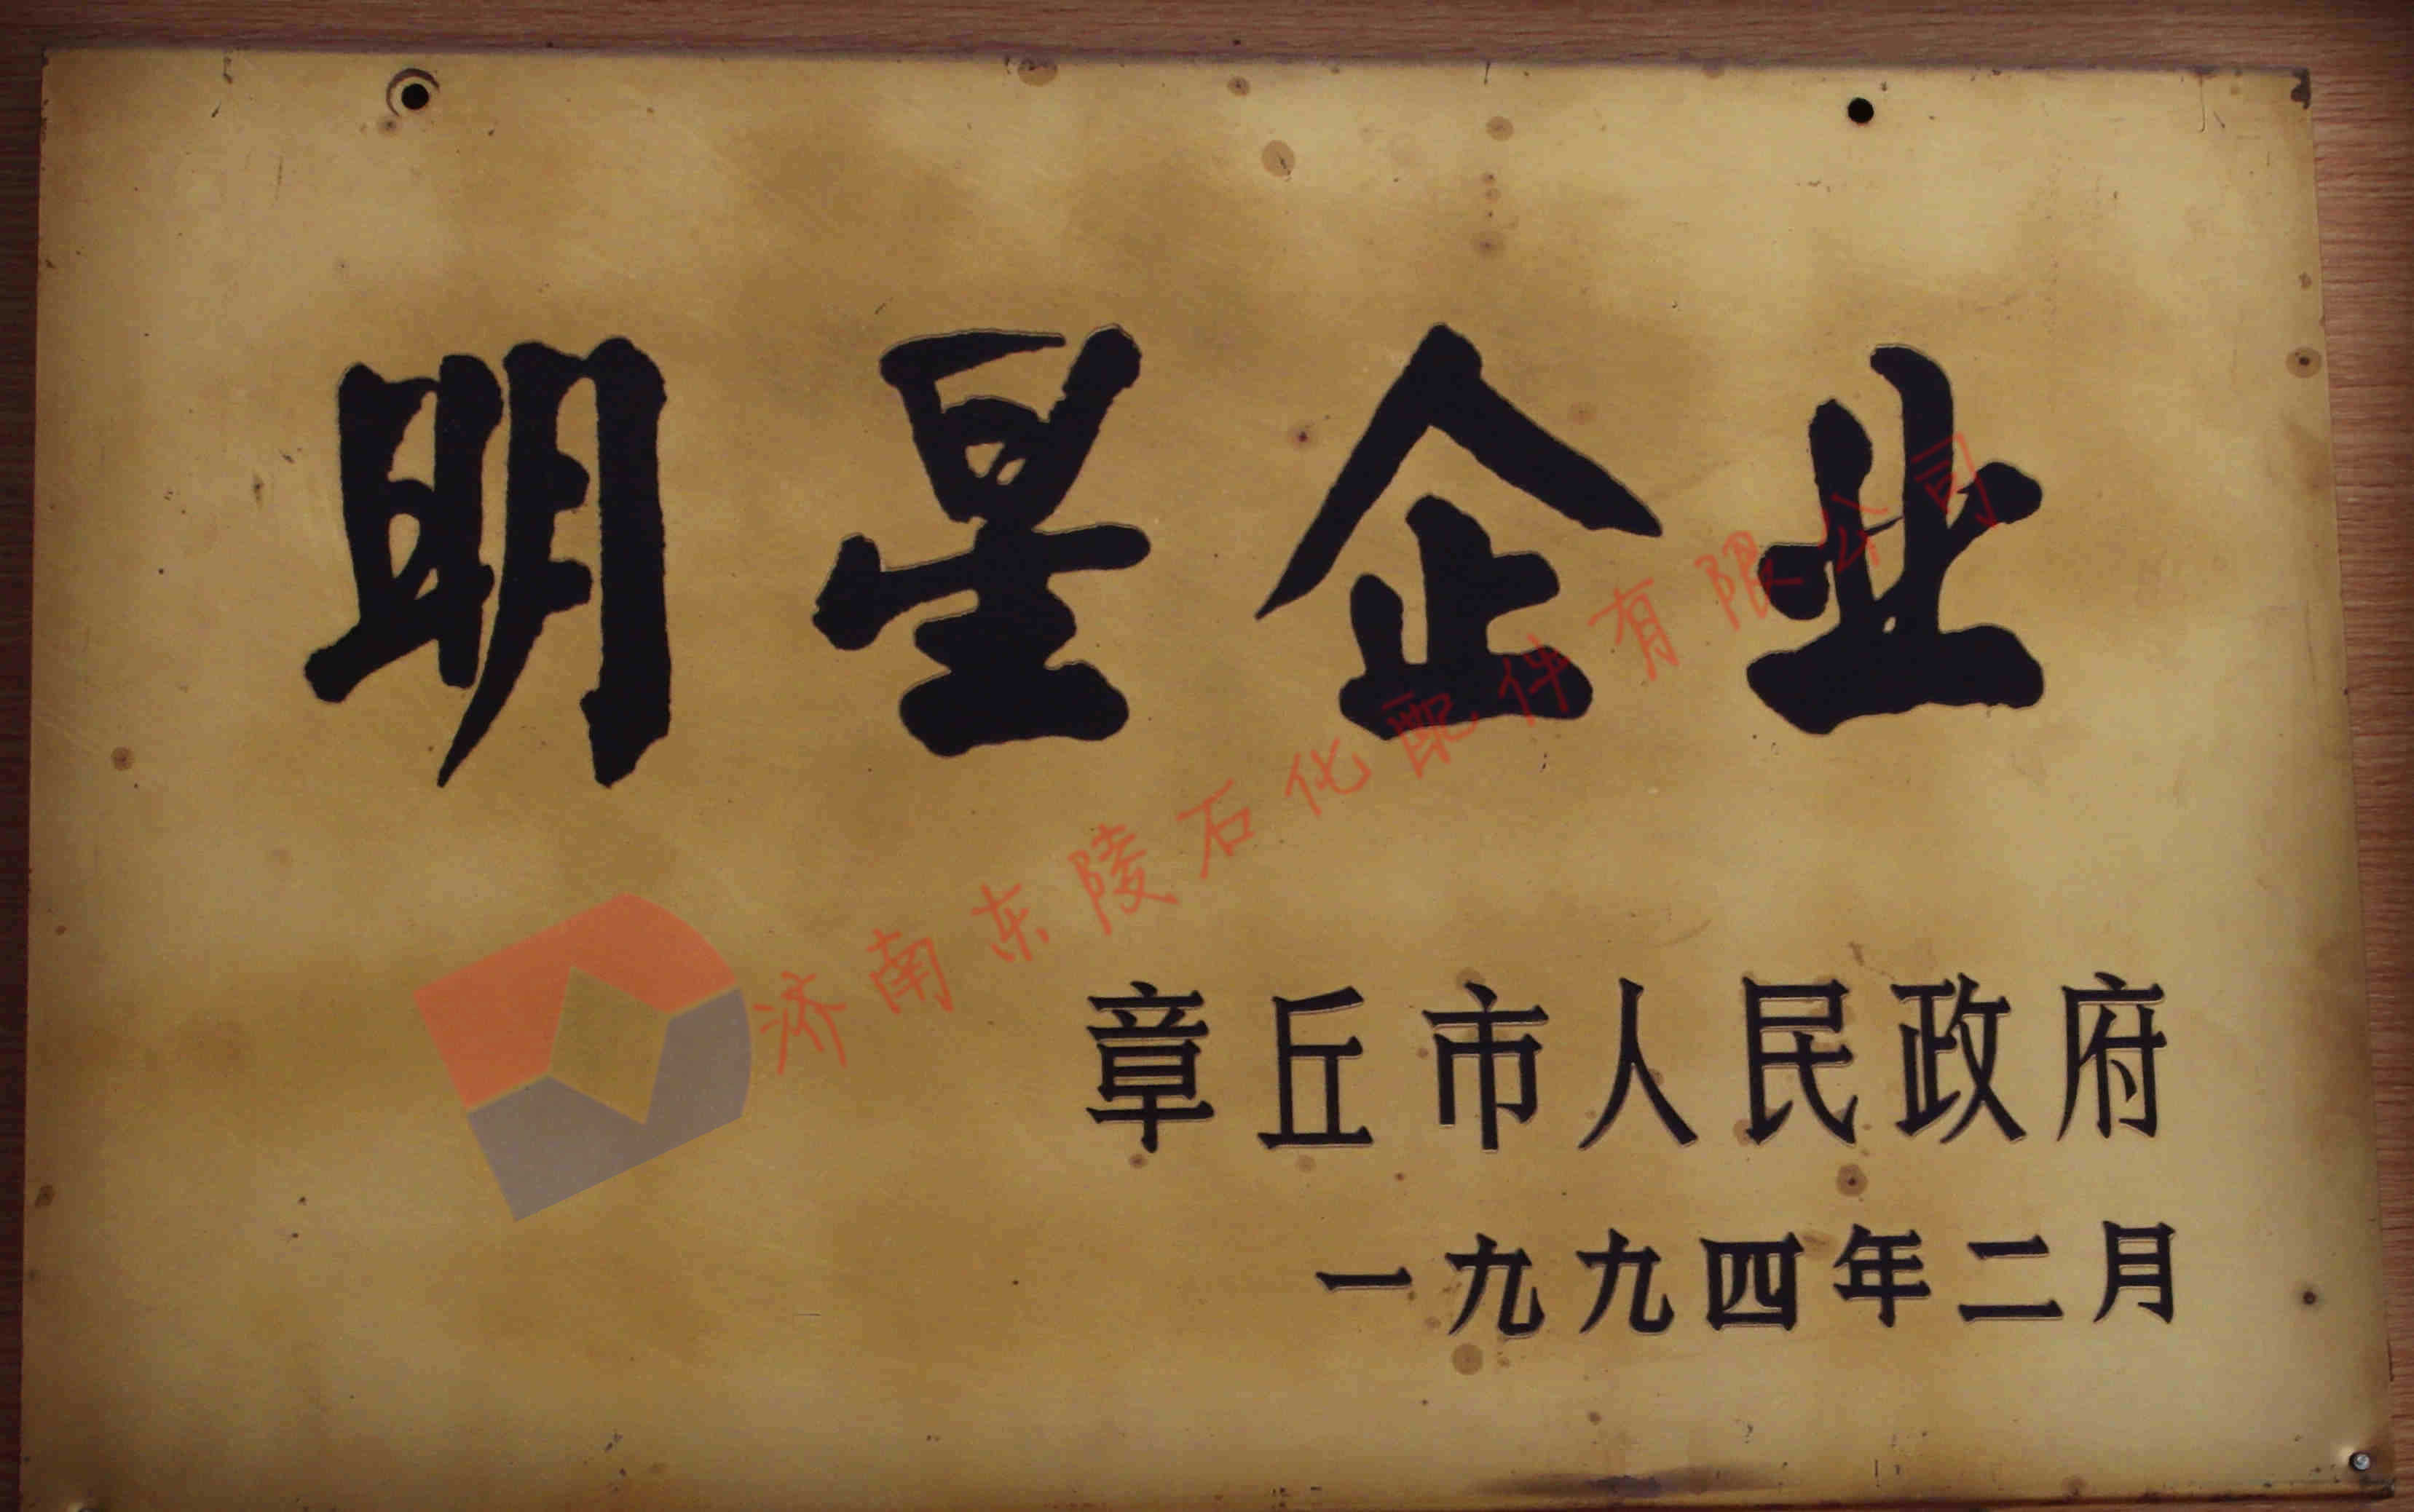 明星企业
济南东陵石化配件有限公司
章丘市人民政府
一九九四年二月